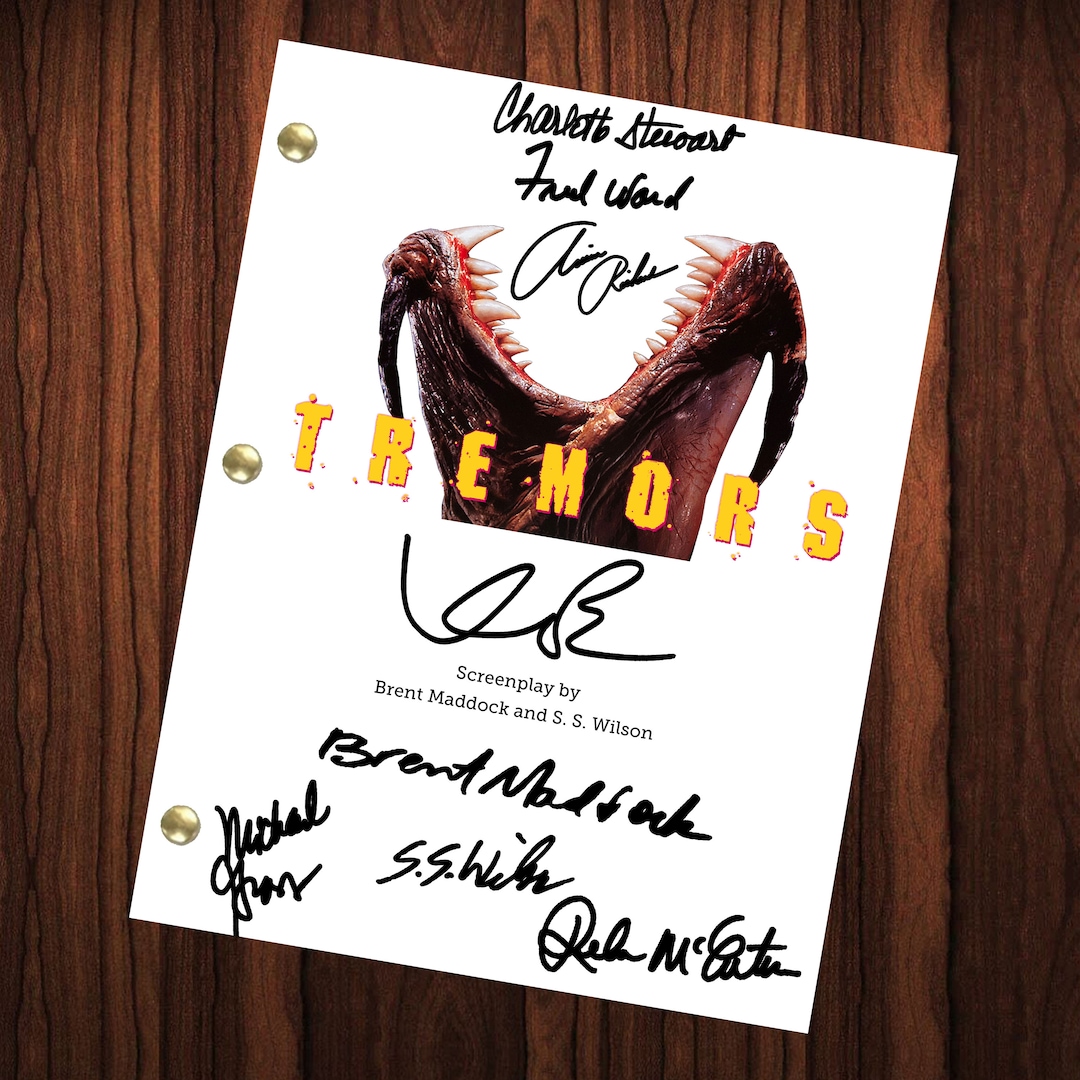 Charlotte Stewart
Fred Ward
TREMORS
Screenplay by
Brent Maddock and S. S. Wilson
Brent Maddock
Michael
Gross
S.S. Wilson
Reba McEntire